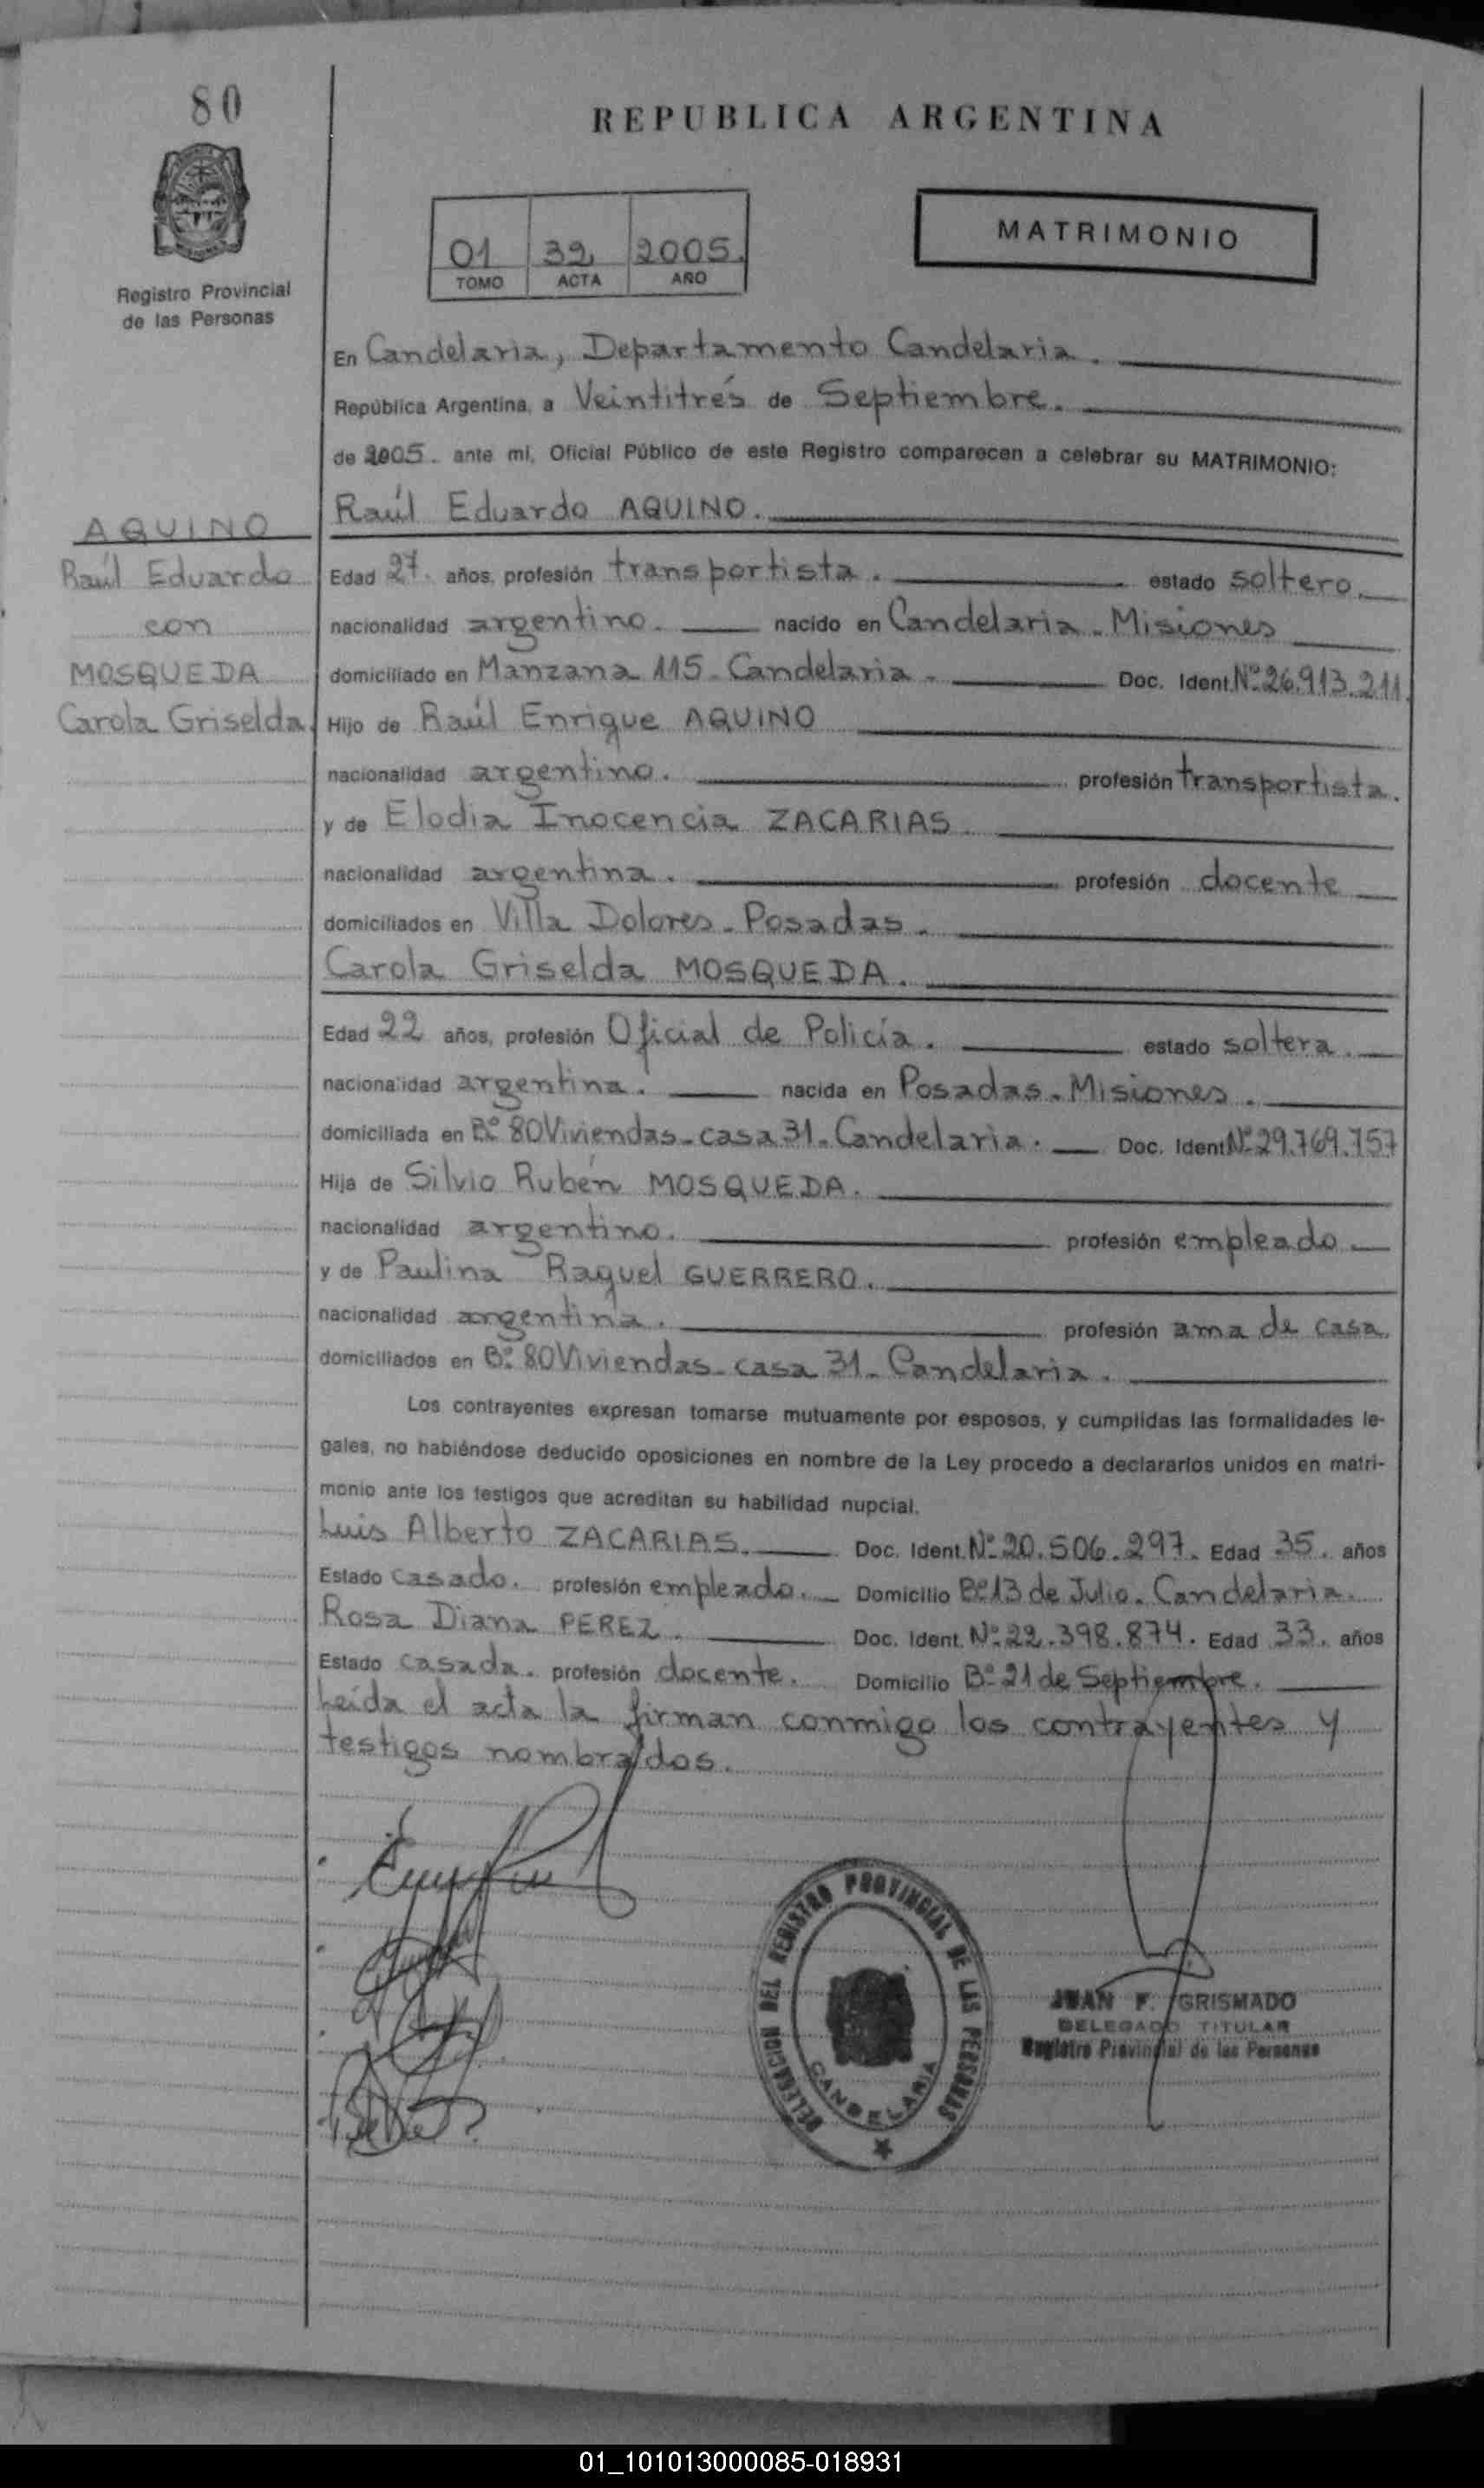 80
REPUBLICA ARGENTINA
01 32 2005.
TOMO ACTA AÑO
MATRIMONIO
Registro Provincial
de las Personas
En Candelaria, Departamento Candelaria.
República Argentina, a Veintitrés de Septiembre.
de 2005. ante mi, Oficial Público de este Registro comparecen a celebrar su MATRIMONIO:
Raúl Eduardo AQUINO.
AQUINO
Raúl Eduardo
con
MOSQUEDA
Carola Griselda.
Edad 27. años, profesión transportista. estado soltero.
nacionalidad argentino. nacido en Candelaria - Misiones
domiciliado en Manzana 115 - Candelaria - Doc. Ident. Nº 26.913.211.
Hijo de Raúl Enrique AQUINO
nacionalidad argentino. profesión transportista.
y de Elodia Inocencia ZACARIAS.
nacionalidad argentina. profesión docente
domiciliados en Villa Dolores - Posadas.
Carola Griselda MOSQUEDA.
Edad 22 años, profesión Oficial de Policía. estado soltera.
nacionalidad argentina. nacida en Posadas - Misiones.
domiciliada en Bº 80 Viviendas - casa 31 - Candelaria. Doc. Ident. Nº 29.769.757
Hija de Silvio Rubén MOSQUEDA.
nacionalidad argentino. profesión empleado
y de Paulina Raquel GUERRERO.
nacionalidad argentina. profesión ama de casa.
domiciliados en Bº 80 Viviendas - casa 31 - Candelaria.
Los contrayentes expresan tomarse mutuamente por esposos, y cumplidas las formalidades le-
gales, no habiéndose deducido oposiciones en nombre de la Ley procedo a declararlos unidos en matri-
monio ante los testigos que acreditan su habilidad nupcial.
Luis Alberto ZACARIAS. Doc. Ident. Nº 20.506.297. Edad 35. años
Estado casado. profesión empleado. Domicilio Bº 13 de Julio - Candelaria.
Rosa Diana PEREZ. Doc. Ident. Nº 22.398.874. Edad 33. años
Estado casada. profesión docente. Domicilio Bº 21 de Septiembre.
Leída el acta la firman conmigo los contrayentes y
testigos nombrados.
DELEGACION DEL REGISTRO PROVINCIAL DE LAS PERSONAS
CANDELARIA
JUAN F. GRISMADO
DELEGADO TITULAR
Registro Provincial de las Personas
01_101013000085-018931